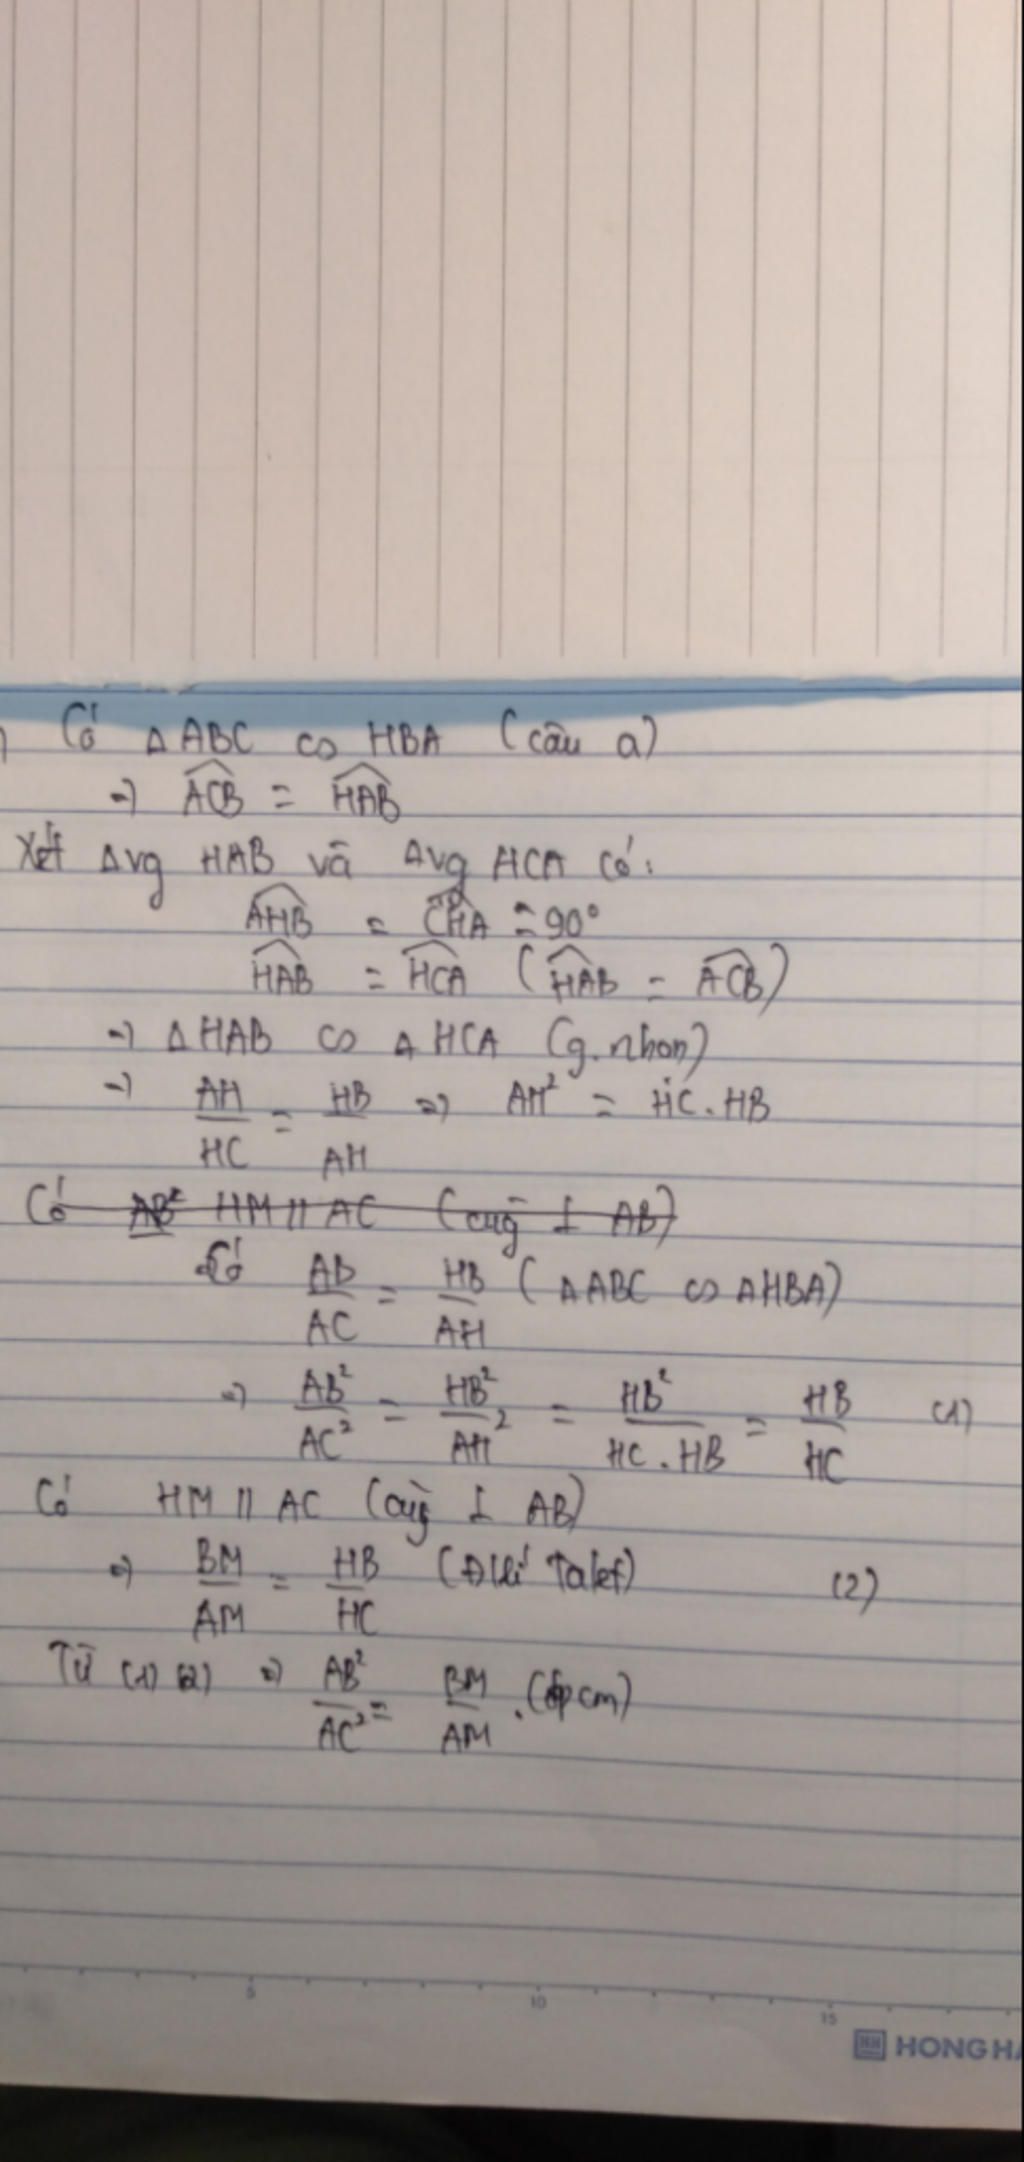 Có △ABC ∽ HBA (câu a)
=> ACB = HAB
Xét △vg HAB và △vg HCA có:
AHB = CHA = 90°
HAB = HCA (HAB = ACB)
=> △HAB ∽ △HCA (g.nhọn)
=> AH/HC = HB/AH => AH² = HC.HB
Có AB² HM // AC (cùg ⊥ AB)
Có AB/AC = HB/AH (△ABC ∽ △HBA)
=> AB²/AC² = HB²/AH² = HB²/HC.HB = HB/HC (1)
Có HM // AC (cùg ⊥ AB)
=> BM/AM = HB/HC (Đlí Talet) (2)
Từ (1) (2) => AB²/AC² = BM/AM . (đpcm)
5 10 15
HH HONG HA